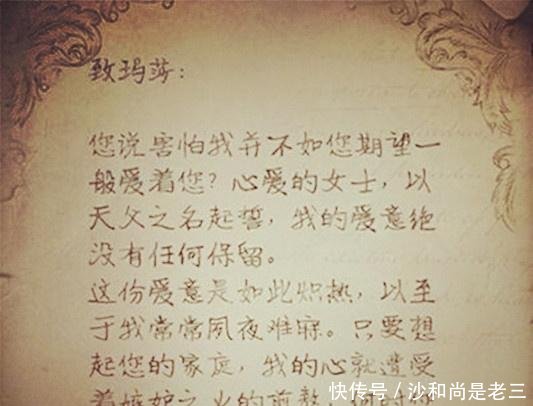 致玛莎：
您说害怕我并不如您期望一
般爱着您？心爱的女士，以
天父之名起誓，我的爱意绝
没有任何保留。
这份爱意是如此炽热，以至
于我常常夙夜难寐。只要想
起您的家庭，我的心就遭受
着嫉妒之火的煎熬
快传号／沙和尚是老三